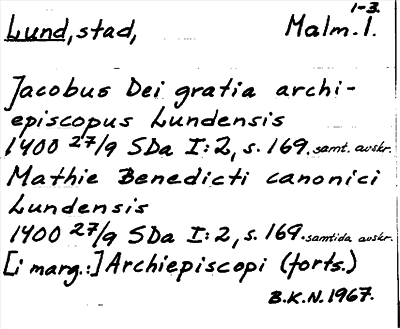 1-3.
Lund, stad, Malm. 1.
Jacobus Dei gratia archi-
episcopus Lundensis
1400 27/9 SDa I:2, s. 169. samt. avskr.
Mathie Benedicti canonici
Lundensis
1400 27/9 SDa I:2, s. 169. samtida avskr.
[i marg.:] Archiepiscopi (forts.)
B.K.N. 1967.